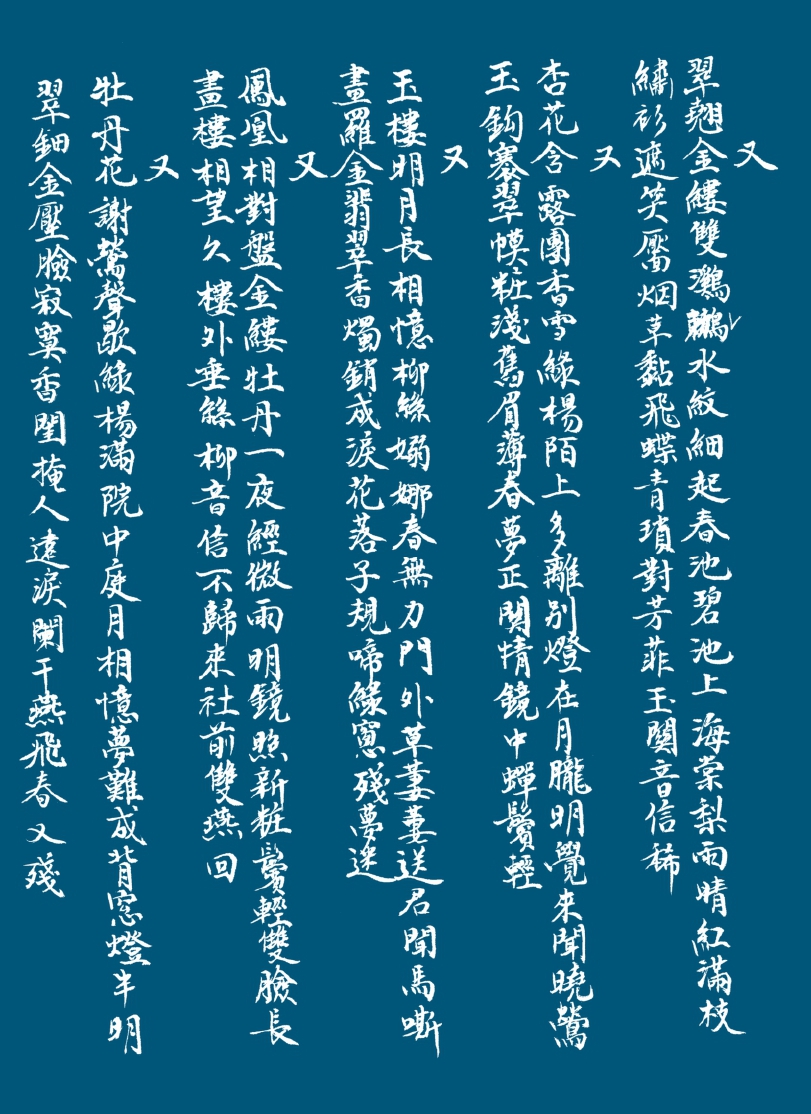 又
翠翹金縷雙鸂鶒水紋細起春池碧池上海棠梨雨晴紅滿枝
繡衫遮笑靨烟草黏飛蝶青瑣對芳菲玉關音信稀
又
杏花含露團香雪綠楊陌上多離別燈在月朧明覺來聞曉鶯
玉鈎褰翠幙粧淺舊眉薄春夢正關情鏡中蟬鬢輕
又
玉樓明月長相憶柳絲嫋娜春無力門外草萋萋送君聞馬嘶
畫羅金翡翠香燭銷成淚花落子規啼綠窻殘夢迷
又
鳳凰相對盤金縷牡丹一夜經微雨明鏡照新粧鬢輕雙臉長
畫樓相望久樓外垂絲柳音信不歸來社前雙燕回
又
牡丹花謝鶯聲歇綠楊滿院中庭月相憶夢難成背窓燈半明
翠鈿金壓臉寂寞香閨掩人遠淚闌干燕飛春又殘